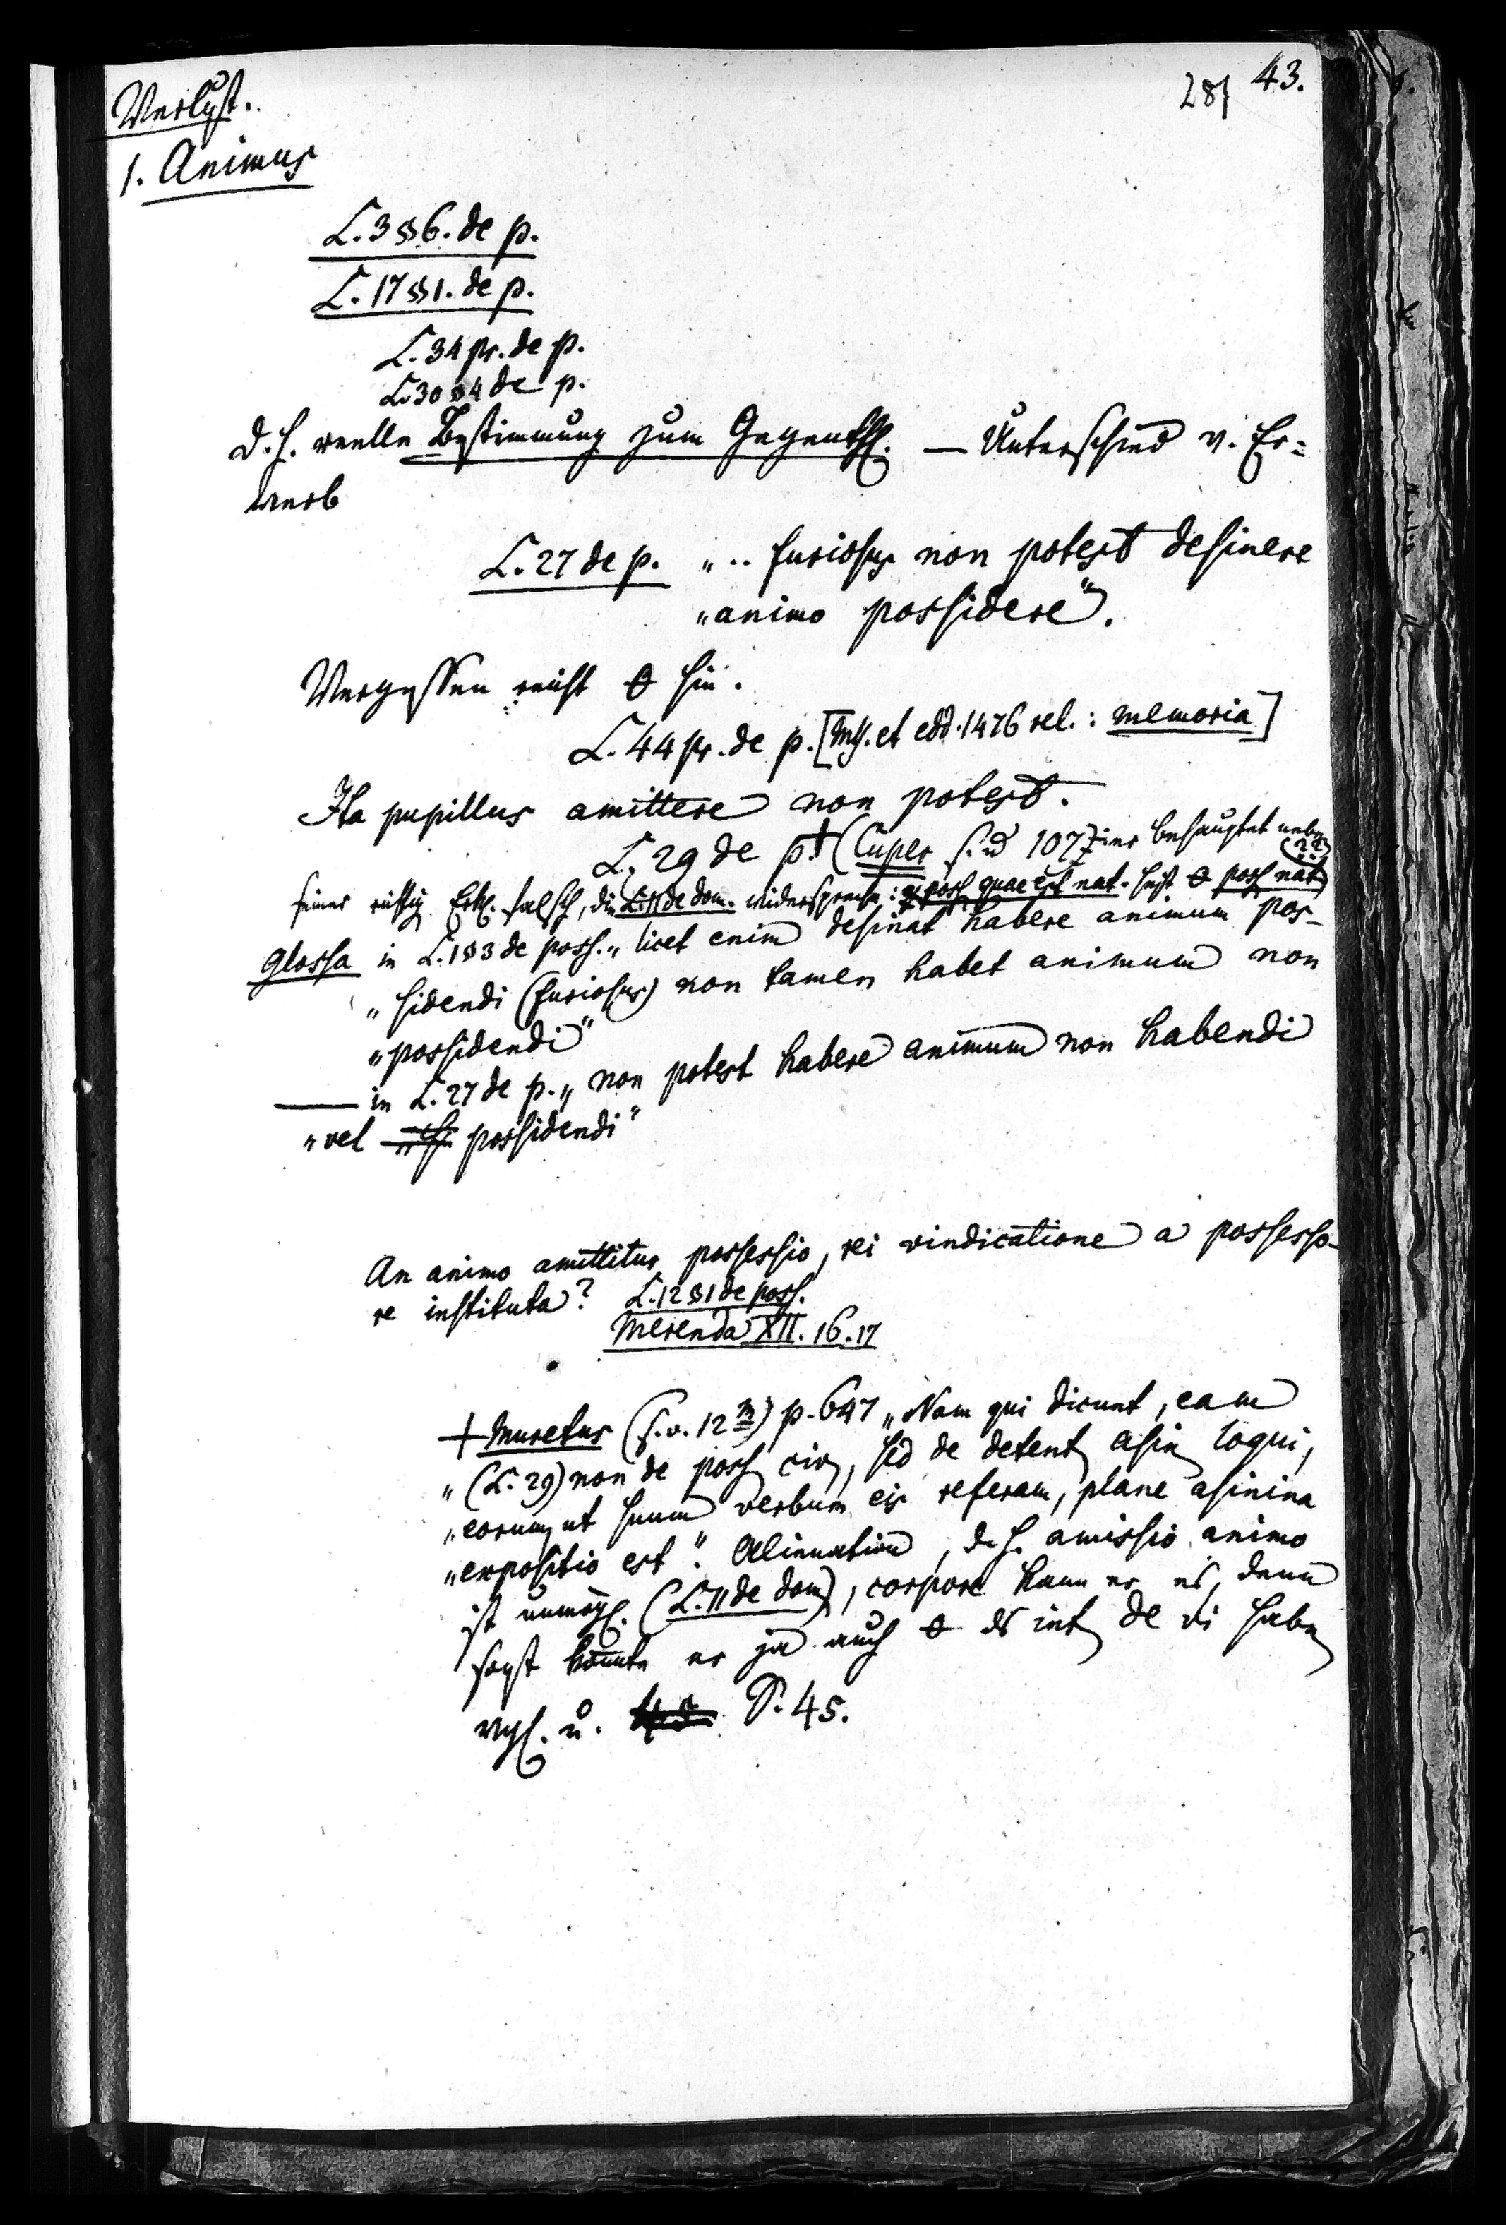 281 43.
Verlust.
1. Animus
L. 3 § 6. de p.
L. 17 § 1. de p.
L. 34 pr. de p.
L. 30 § 4 de p.
d. h. reelle Bestimmung zum Gegenthl. — Unterschied v. Er=
werb
L. 27 de p. „ .. furiosus non potest desinere
„animo possidere“.
Vergessen reicht θ hin.
L. 44 pr. de p. [Ms. et edd. 1476 rel.: memoria]
Ita pupillus amittere non potest.
L. 29 de p. † (Cuper 107 behauptet neben
seiner richtig Erkl. falsch, die L. 11 de dom. widerspreche: poss quae est nat. heist θ poss nat) (??)
Glossa in L. 1 § 3 de poss. „licet enim desinat habere animum pos-
„sidendi (furiosus) non tamen habet animum non
„possidendi“
— in L. 27 de p. „non potest habere animum non habendi
„vel possidendi“
An animo amittitur possessio, rei vindicatione a possesso-
re instituta? L. 12 § 1 de poss.
Merenda XII. 16. 17
† Muretus (s. v. 12 m) p. 647 „Nam qui dicunt, eam
„(L. 29) non de poss civ, sed de detent asin loqui,
„eorum, ut suum verbum eis referam, plane asinina
„expositio est“. Alienation, d. h. amissio animo
ist unmögl. (L. 11 de dom), corpore kann er es, denn
sonst könnte er ja auch θ ds int de vi haben
vgl. u. S. 45.